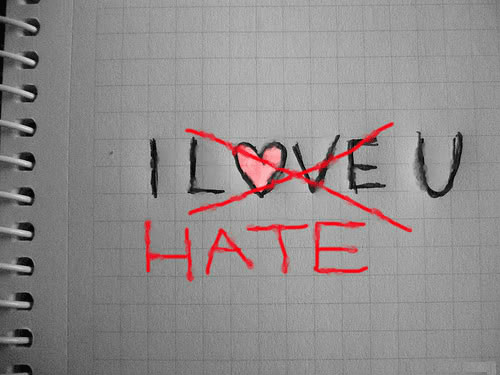 I LOVE U
HATE